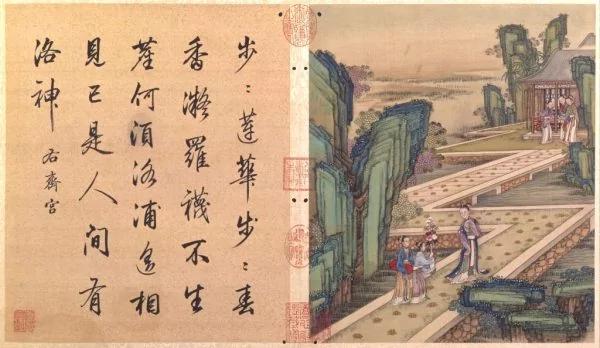 步〻蓮華步〻春
香凝羅襪不生
塵何湏洛浦遙相
見已是人間有
洛神 右齊宮